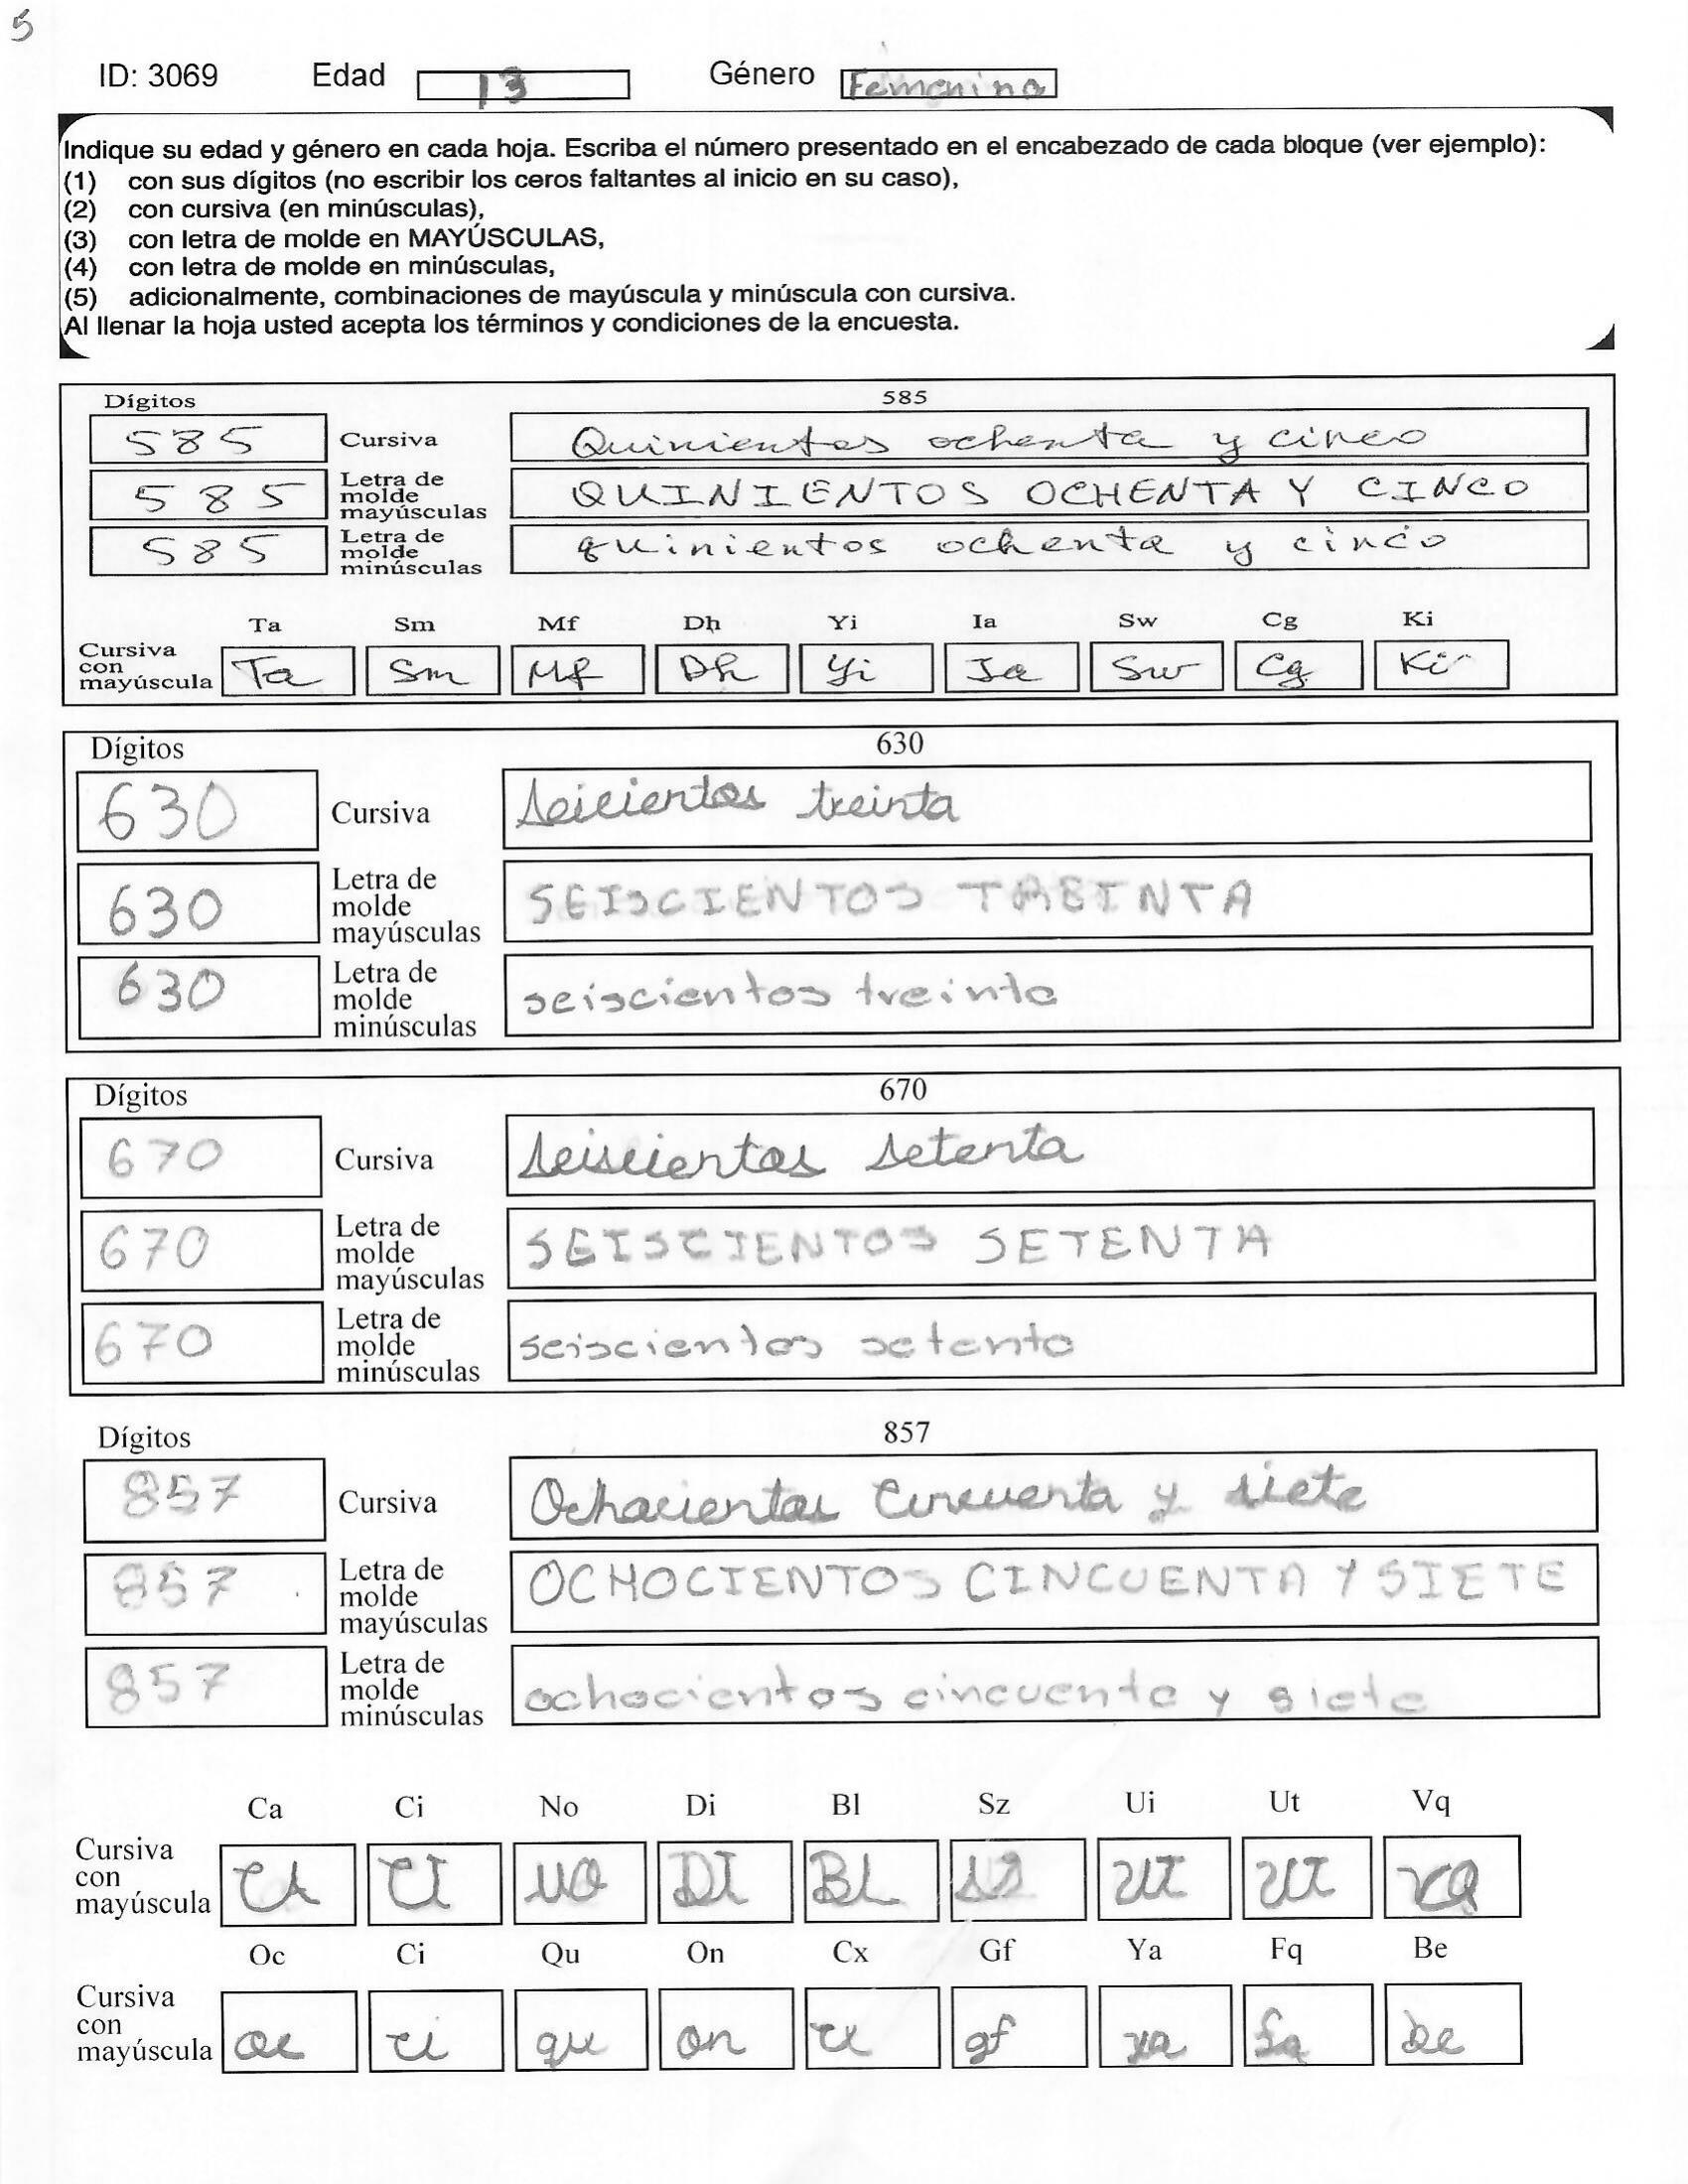 5
ID: 3069 Edad 13 Género Femenino
Indique su edad y género en cada hoja. Escriba el número presentado en el encabezado de cada bloque (ver ejemplo):
(1) con sus dígitos (no escribir los ceros faltantes al inicio en su caso),
(2) con cursiva (en minúsculas),
(3) con letra de molde en MAYÚSCULAS,
(4) con letra de molde en minúsculas,
(5) adicionalmente, combinaciones de mayúscula y minúscula con cursiva.
Al llenar la hoja usted acepta los términos y condiciones de la encuesta.
Dígitos 585
585 Cursiva Quinientos ochenta y cinco
585 Letra de molde mayúsculas QUINIENTOS OCHENTA Y CINCO
585 Letra de molde minúsculas quinientos ochenta y cinco
Ta Sm Mf Dh Yi Ia Sw Cg Ki
Cursiva con mayúscula Ta Sm Mf Dh Yi Ia Sw Cg Ki
Dígitos 630
630 Cursiva seicientos treinta
630 Letra de molde mayúsculas SEISCIENTOS TREINTA
630 Letra de molde minúsculas seiscientos treinta
Dígitos 670
670 Cursiva seiscientos setenta
670 Letra de molde mayúsculas SEISCIENTOS SETENTA
670 Letra de molde minúsculas seiscientos setenta
Dígitos 857
857 Cursiva Ochocientos Cincuenta y siete
857 Letra de molde mayúsculas OCHOCIENTOS CINCUENTA Y SIETE
857 Letra de molde minúsculas ochocientos cincuenta y siete
Ca Ci No Di Bl Sz Ui Ut Vq
Cursiva con mayúscula CA CI NO DI BL SZ UI UT VQ
Oc Ci Qu On Cx Gf Ya Fq Be
Cursiva con mayúscula oc ci qu on gf ya be